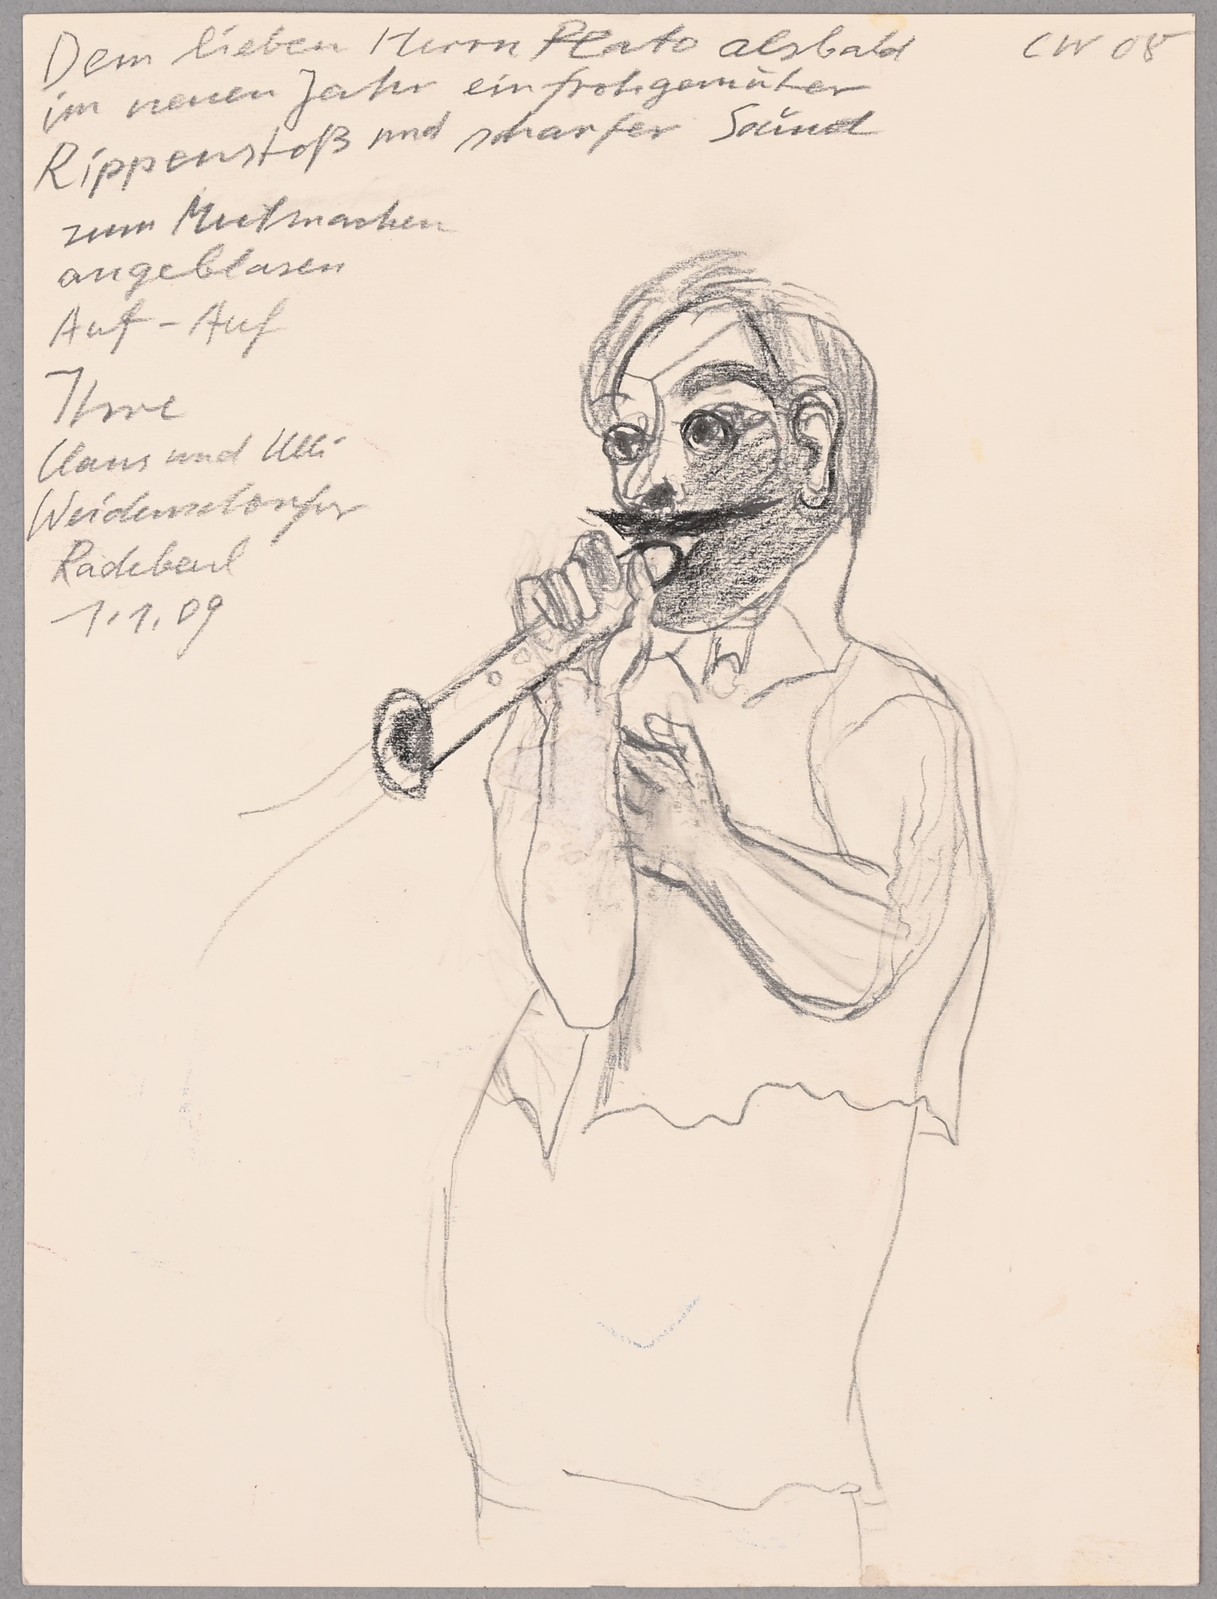 Dem lieben Herrn Plato alsbald
CW 08
im neuen Jahr ein frohgemuter
Rippenstoß und scharfer Sound
zum Mutmachen
angeblasen
Auf - Auf
Ihre
Claus und Ulli
Weidensdorfer
Radebeul
1.1.09